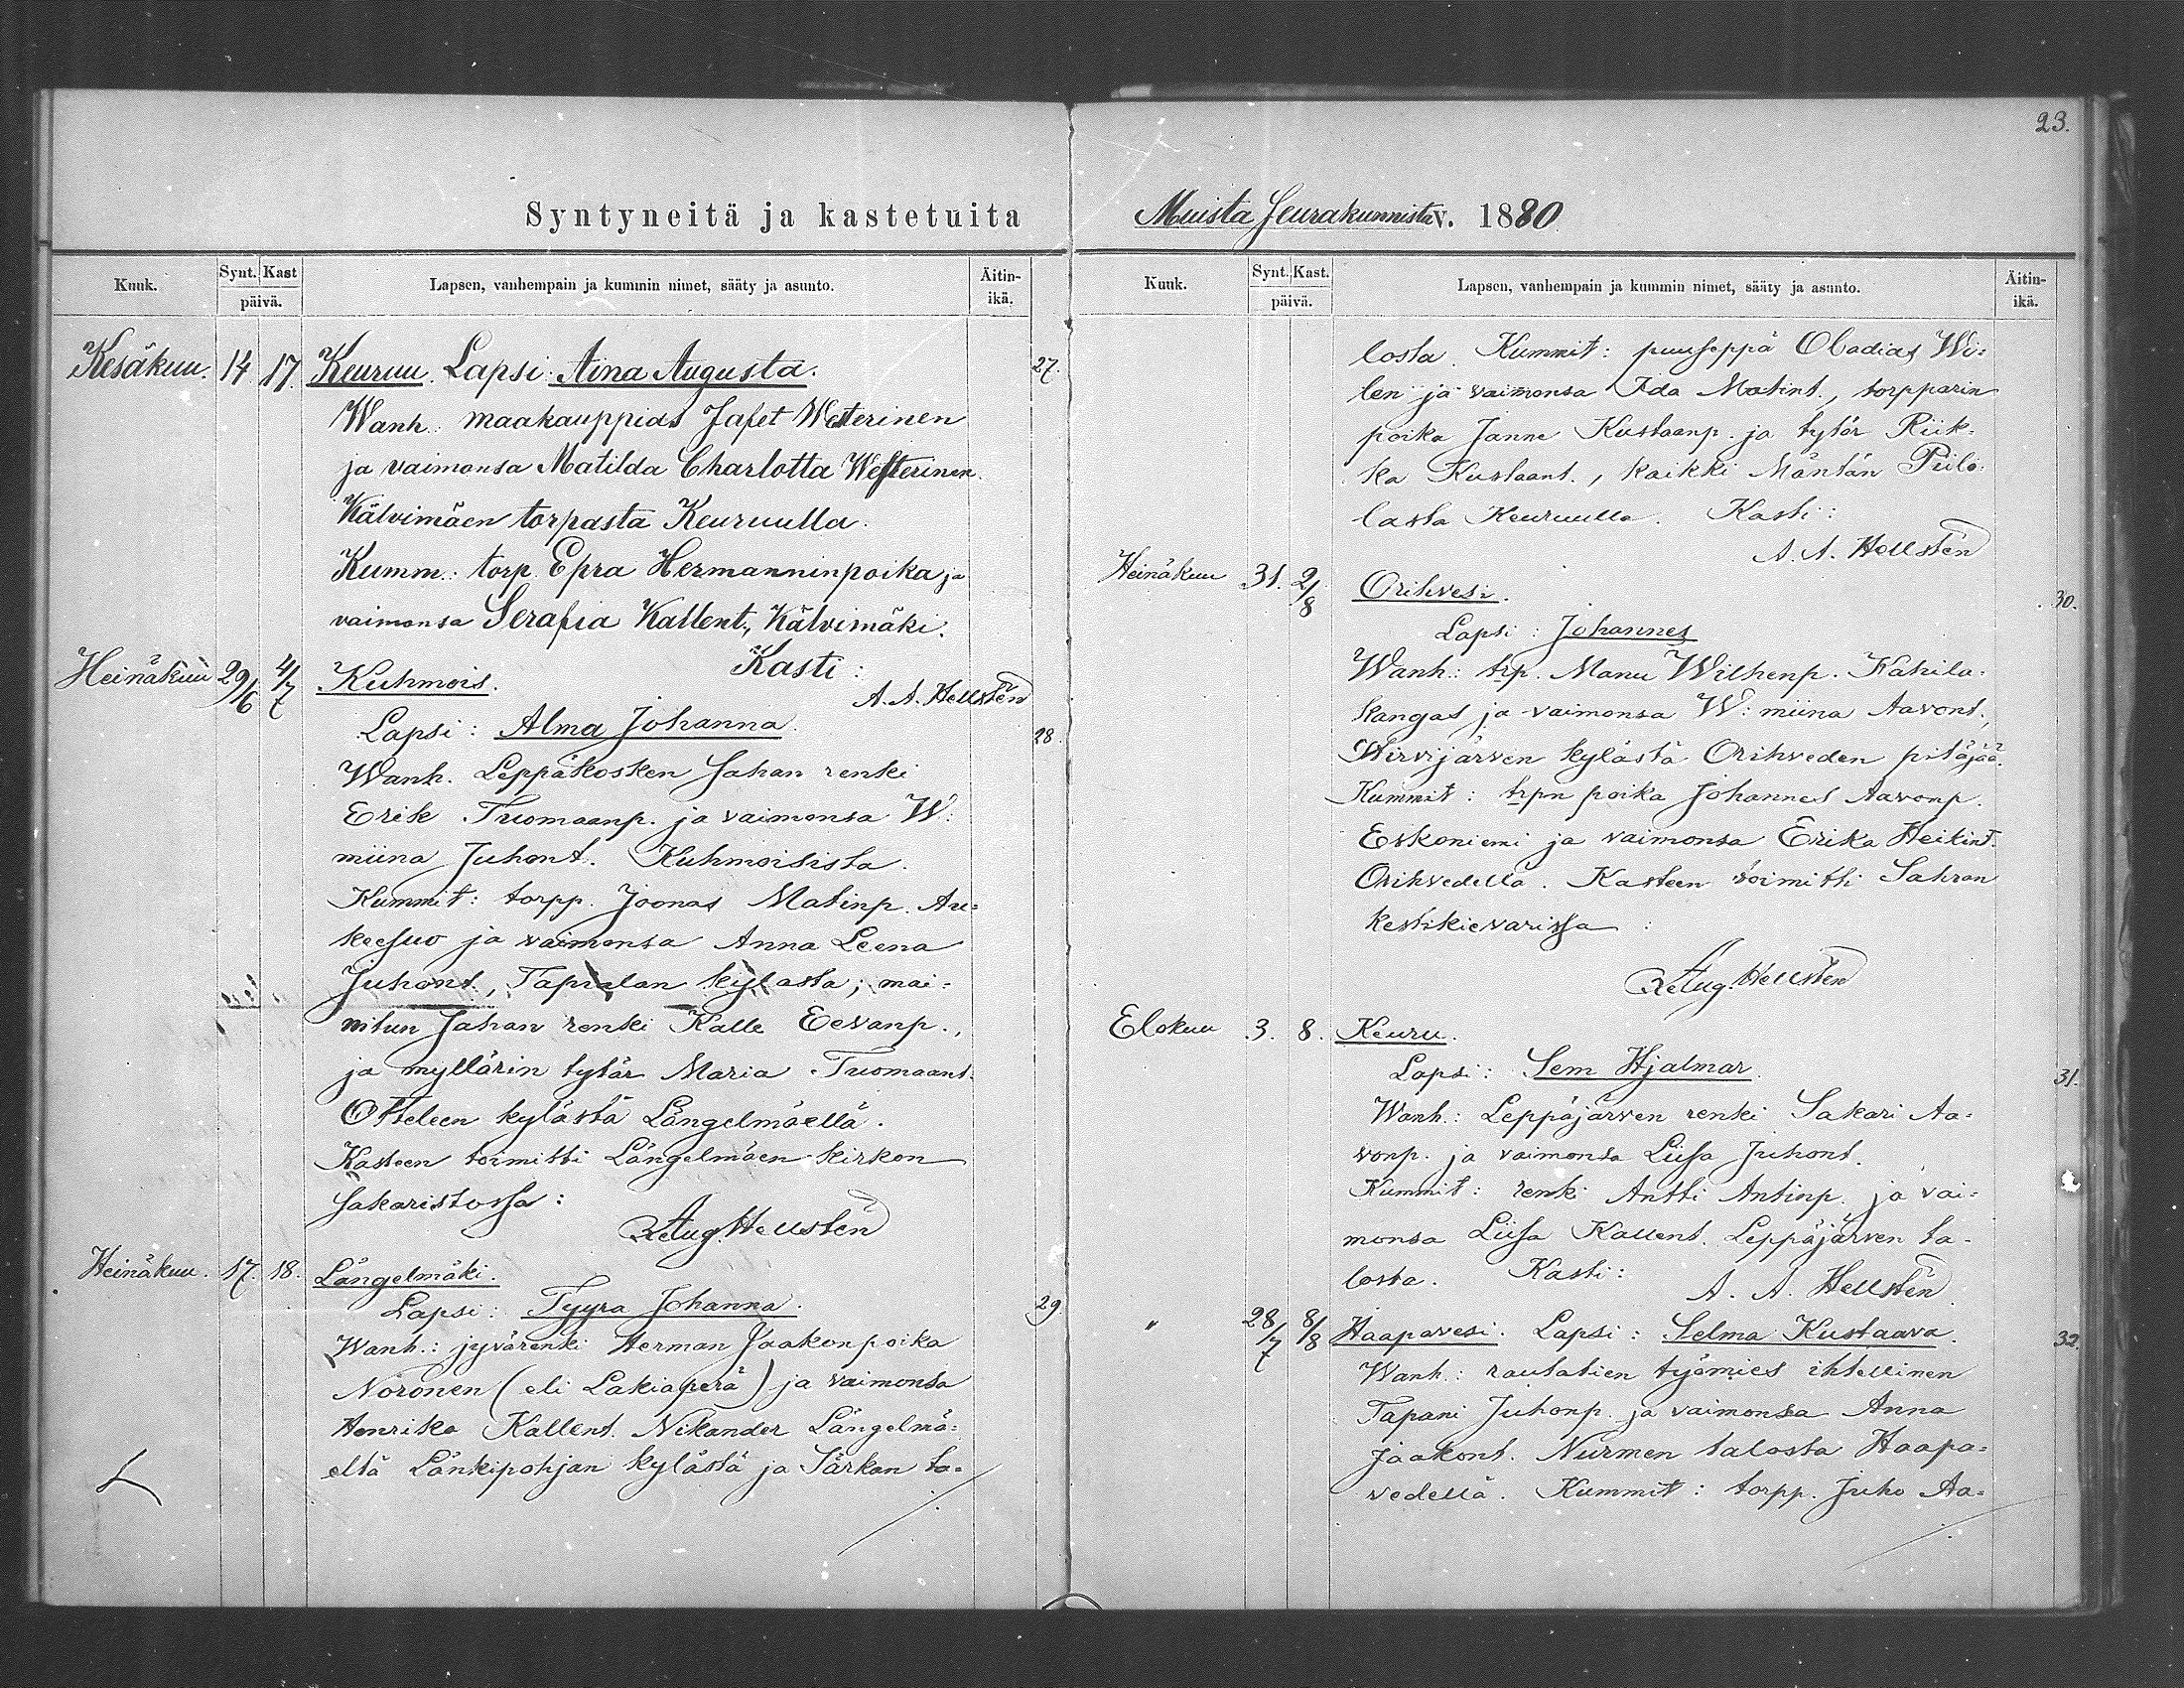 Syntyneitä ja kastetuita
Kuuk.
Synt. Kast
päivä.
Lapsen, vanhempain ja kummin nimet, sääty ja asunto.
Äitin-
ikä.
Kesäkuu. 14 17. Keuruu. Lapsi: Aina Augusta. 27.
Wanh. maakauppias Jafet Westerinen
ja vaimonsa Matilda Charlotta Westerinen.
Kälvimäen torpasta Keuruulla.
Kumm.: torp. Epra Hermanninpoika ja
vaimonsa Serafia Kallent., Kälvimäki.
Kasti:
A. A. Hellstén
Heinäkuu 29/6 4/7 Kuhmois.
Lapsi: Alma Johanna. 28.
Wanh. Leppäkosken sahan renki
Erik Tuomaanp. ja vaimonsa W:
miina Juhont. Kuhmoisista.
Kummit: torpp. Joonas Matinp. Au=
keesuo ja vaimonsa Anna Leena
Juhont., Tapialan kylästä; mai=
nitun sahan renki Kalle Eevanp.,
ja myllärin tytär Maria Tuomaant.
Otteleen kylästä Längelmäellä.
Kasteen toimitti Längelmäen kirkon
sakaristossa:
Aug. Hellstén
Heinäkuu. 17. 18. Längelmäki.
Lapsi: Tyyra Johanna. 29.
Wanh.: jyvärenki Herman Jaakonpoika
Noronen (eli Lakiaperä) ja vaimonsa
Henrika Kallent. Nikander Längelmä=
eltä Länkipohjan kylästä ja Särkan ta=
23.
Muista Seurakunnista v. 1880.
Kuuk.
Synt. Kast.
päivä.
Lapsen, vanhempain ja kummin nimet, sääty ja asunto.
Äitin-
ikä.
losta. Kummit: puuseppä Obadias Wi=
len ja vaimonsa Ida Matint., torpparin
poika Janne Kustaanp. ja tytär Riik=
ka Kustaant., kaikki Mäntän Piilo=
lasta Keuruulla. Kasti:
A. A. Hellstén
Heinäkuu 31. 2/8 Orihvesi. 30.
Lapsi: Johannes
Wanh.: trp. Manu Wilhenp. Kahila=
kangas ja vaimonsa W: miina Aavont.,
Hirvijärven kylästä Orihveden pitäjää.
Kummit: trpn poika Johannes Aavonp.
Eskoniemi ja vaimonsa Erika Heikint.
Orihvedellä. Kasteen toimitti Sahran
kestikievarissa:
Aug. Hellstén
Elokuu 3. 8. Keuru.
Lapsi: Sem Hjalmar. 31.
Wanh.: Leppäjärven renki Sakari Aa=
vonp. ja vaimonsa Liisa Juhont.
Kummit: renki Antti Antinp. ja vai=
monsa Liisa Kallent. Leppäjärven ta=
losta. Kasti: A. A. Hellstén.
" 28/7 8/8 Haapavesi. Lapsi: Selma Kustaava. 32.
Wanh.: rautatien työmies ihtellinen
Tapani Juhonp. ja vaimonsa Anna
Jaakont. Nurmen talosta Haapa=
vedellä. Kummit: torpp. Juho Aa=